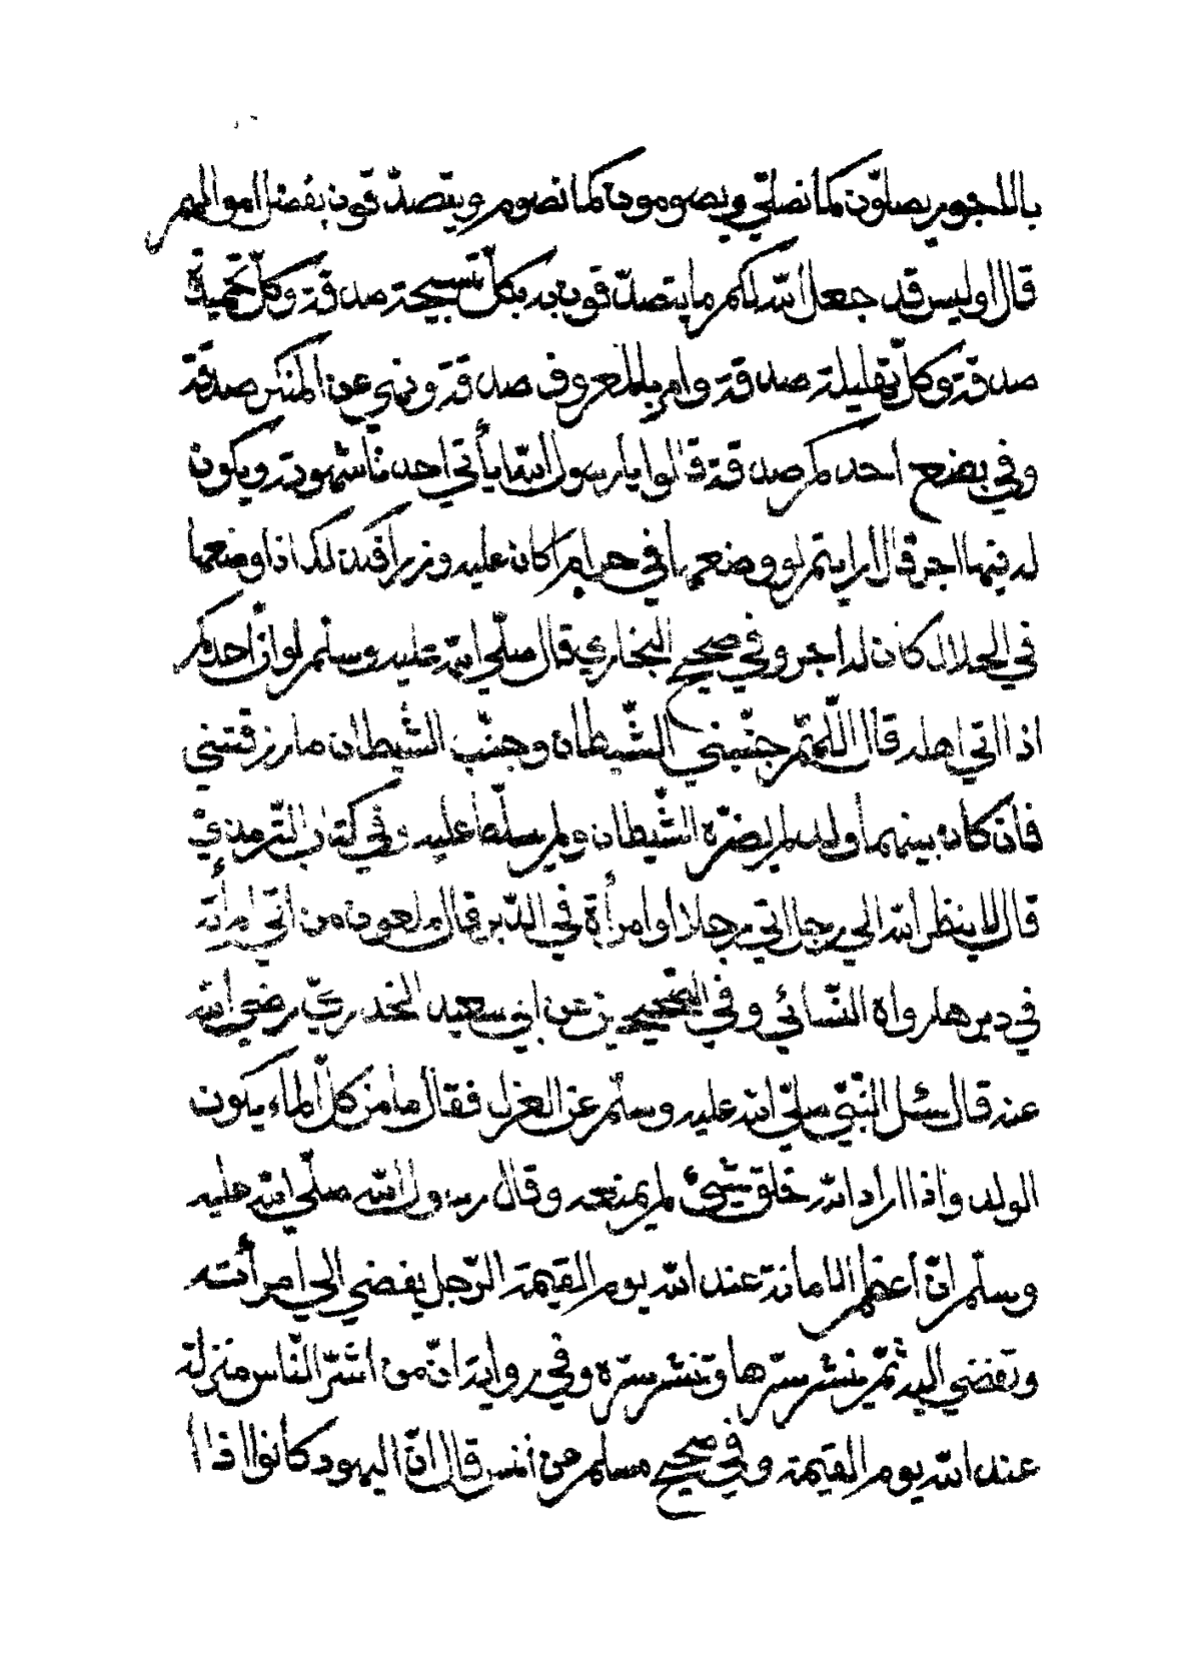 بالاجور يصلّون كما نصلّي ويصومون كما نصوم ويتصدّقون بفضل اموالهم
قال اوليس قد جعل الله لكم ما يتصدّقون به بكلّ تسبيحة صدقة وكلّ تحميدة
صدقة وكلّ تهليلة صدقة وامر بالمعروف صدقة ونهي عن المنكر صدقة
وفي بضع احدكم صدقة قالوا يا رسول الله ايأتي احدنا شهوته ويكون
له فيها اجر قال ارايتم لو وضعها في حرام اكان عليه وزر افكذلك اذا وضعها
في الحلال كان له اجر وفي صحيح البخاري قال صلّي الله عليه وسلّم لو انّ احدكم
اذا اتي اهله قال اللّهمّ جنّبني الشّيطان وجنّب الشّيطان ما رزقتني
فان كان بينهما ولد لم يضرّه الشّيطان ولم يسلّط عليه وفي كتاب التّرمذيّ
قال لا ينظر الله الي رجل اتي رجلا او امرأة في الدّبر قال ملعون من اتي امرأته
في دبرها رواه النّسائي وفي الصّحيحين عن ابي سعيد الخدريّ رضي الله
عنه قال سئل النّبيّ صلّي الله عليه وسلّم عن العزل فقال ما من كلّ الماء يكون
الولد واذا اراد الله خلق شيئ لم يمنعه وقال رسول الله صلّي الله عليه
وسلّم انّ اعظم الامانة عند الله يوم القيمة الرّجل يفضي الي امرأته
وتفضي اليه ثمّ ينشر سرّها وتنشر سرّه وفي رواية انّ من اشرّ النّاس منزلة
عند الله يوم القيمة وفي صحيح مسلم عن أنس قال انّ اليهود كانوا اذا